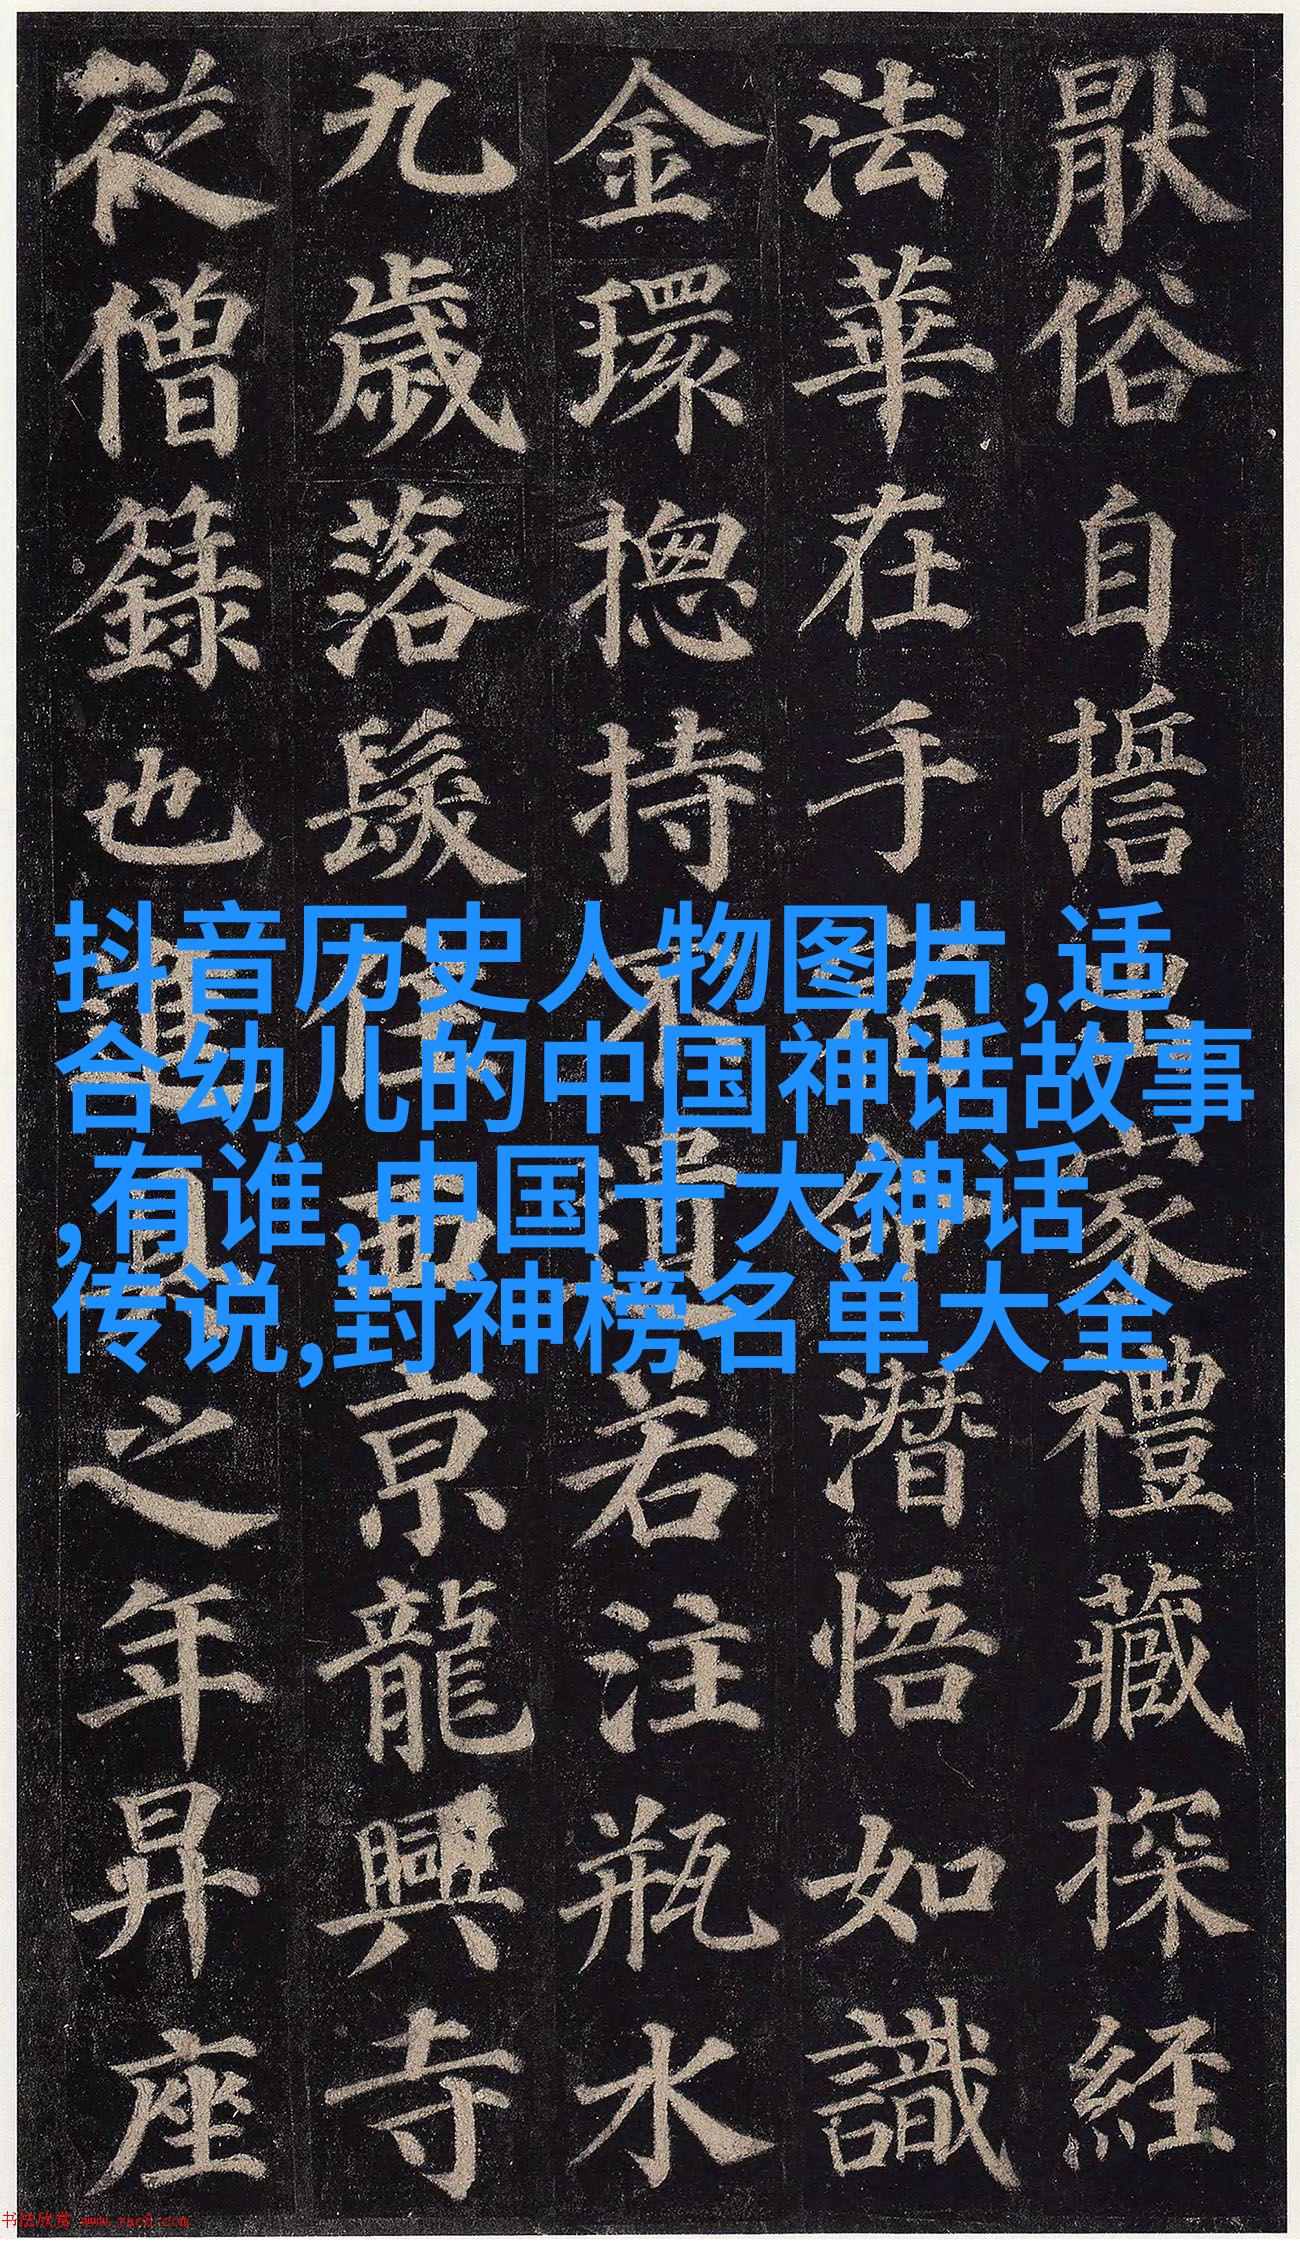 猒俗自誓出家禮藏探經
法華在手宿命潛悟如識
金環摠持不遺若注瓶水
九歲落髮住西京龍興寺
從僧籙也進具之年昇座
抖音历史人物图片,适
合幼儿的中国神话故事
,有谁,中国十大神话
传说,封神榜名单大全
书法欣赏 www.yac8.com